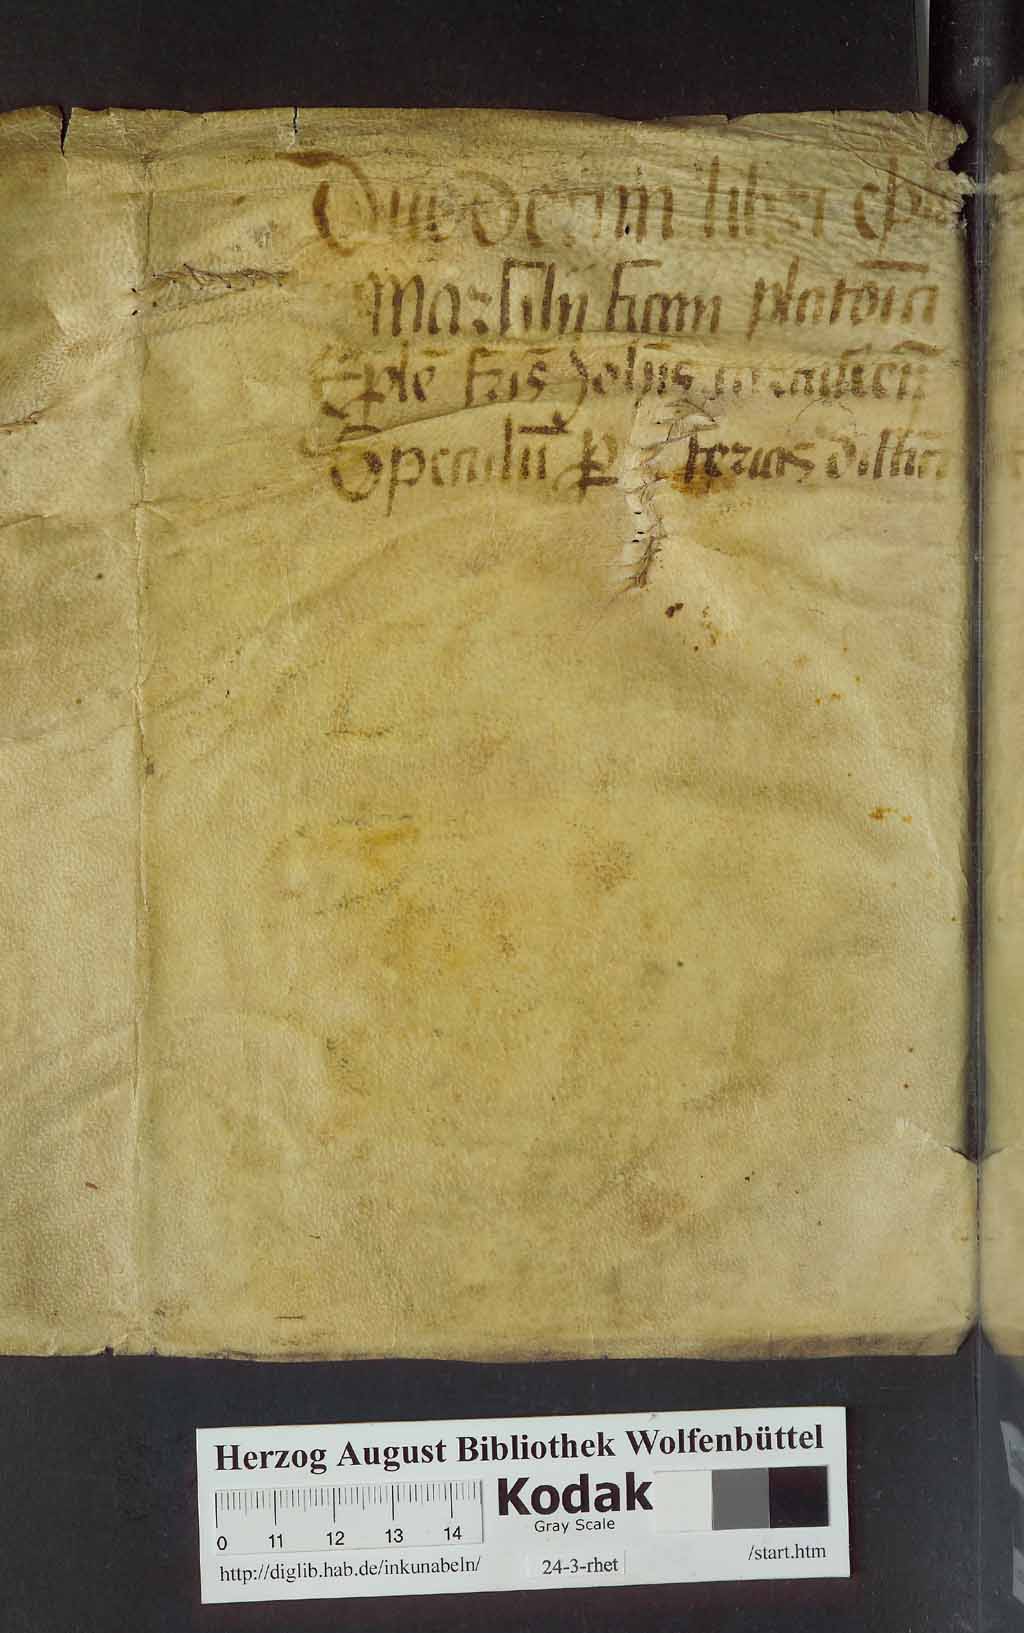 Duodecim libri epl̄a
Marsilij ficini platonici
Ep̄le fr̄is Joh̄is
Speculū
Herzog August Bibliothek Wolfenbüttel
Kodak
Gray Scale
0 11 12 13 14
http://diglib.hab.de/inkunabeln/ 24-3-rhet /start.htm